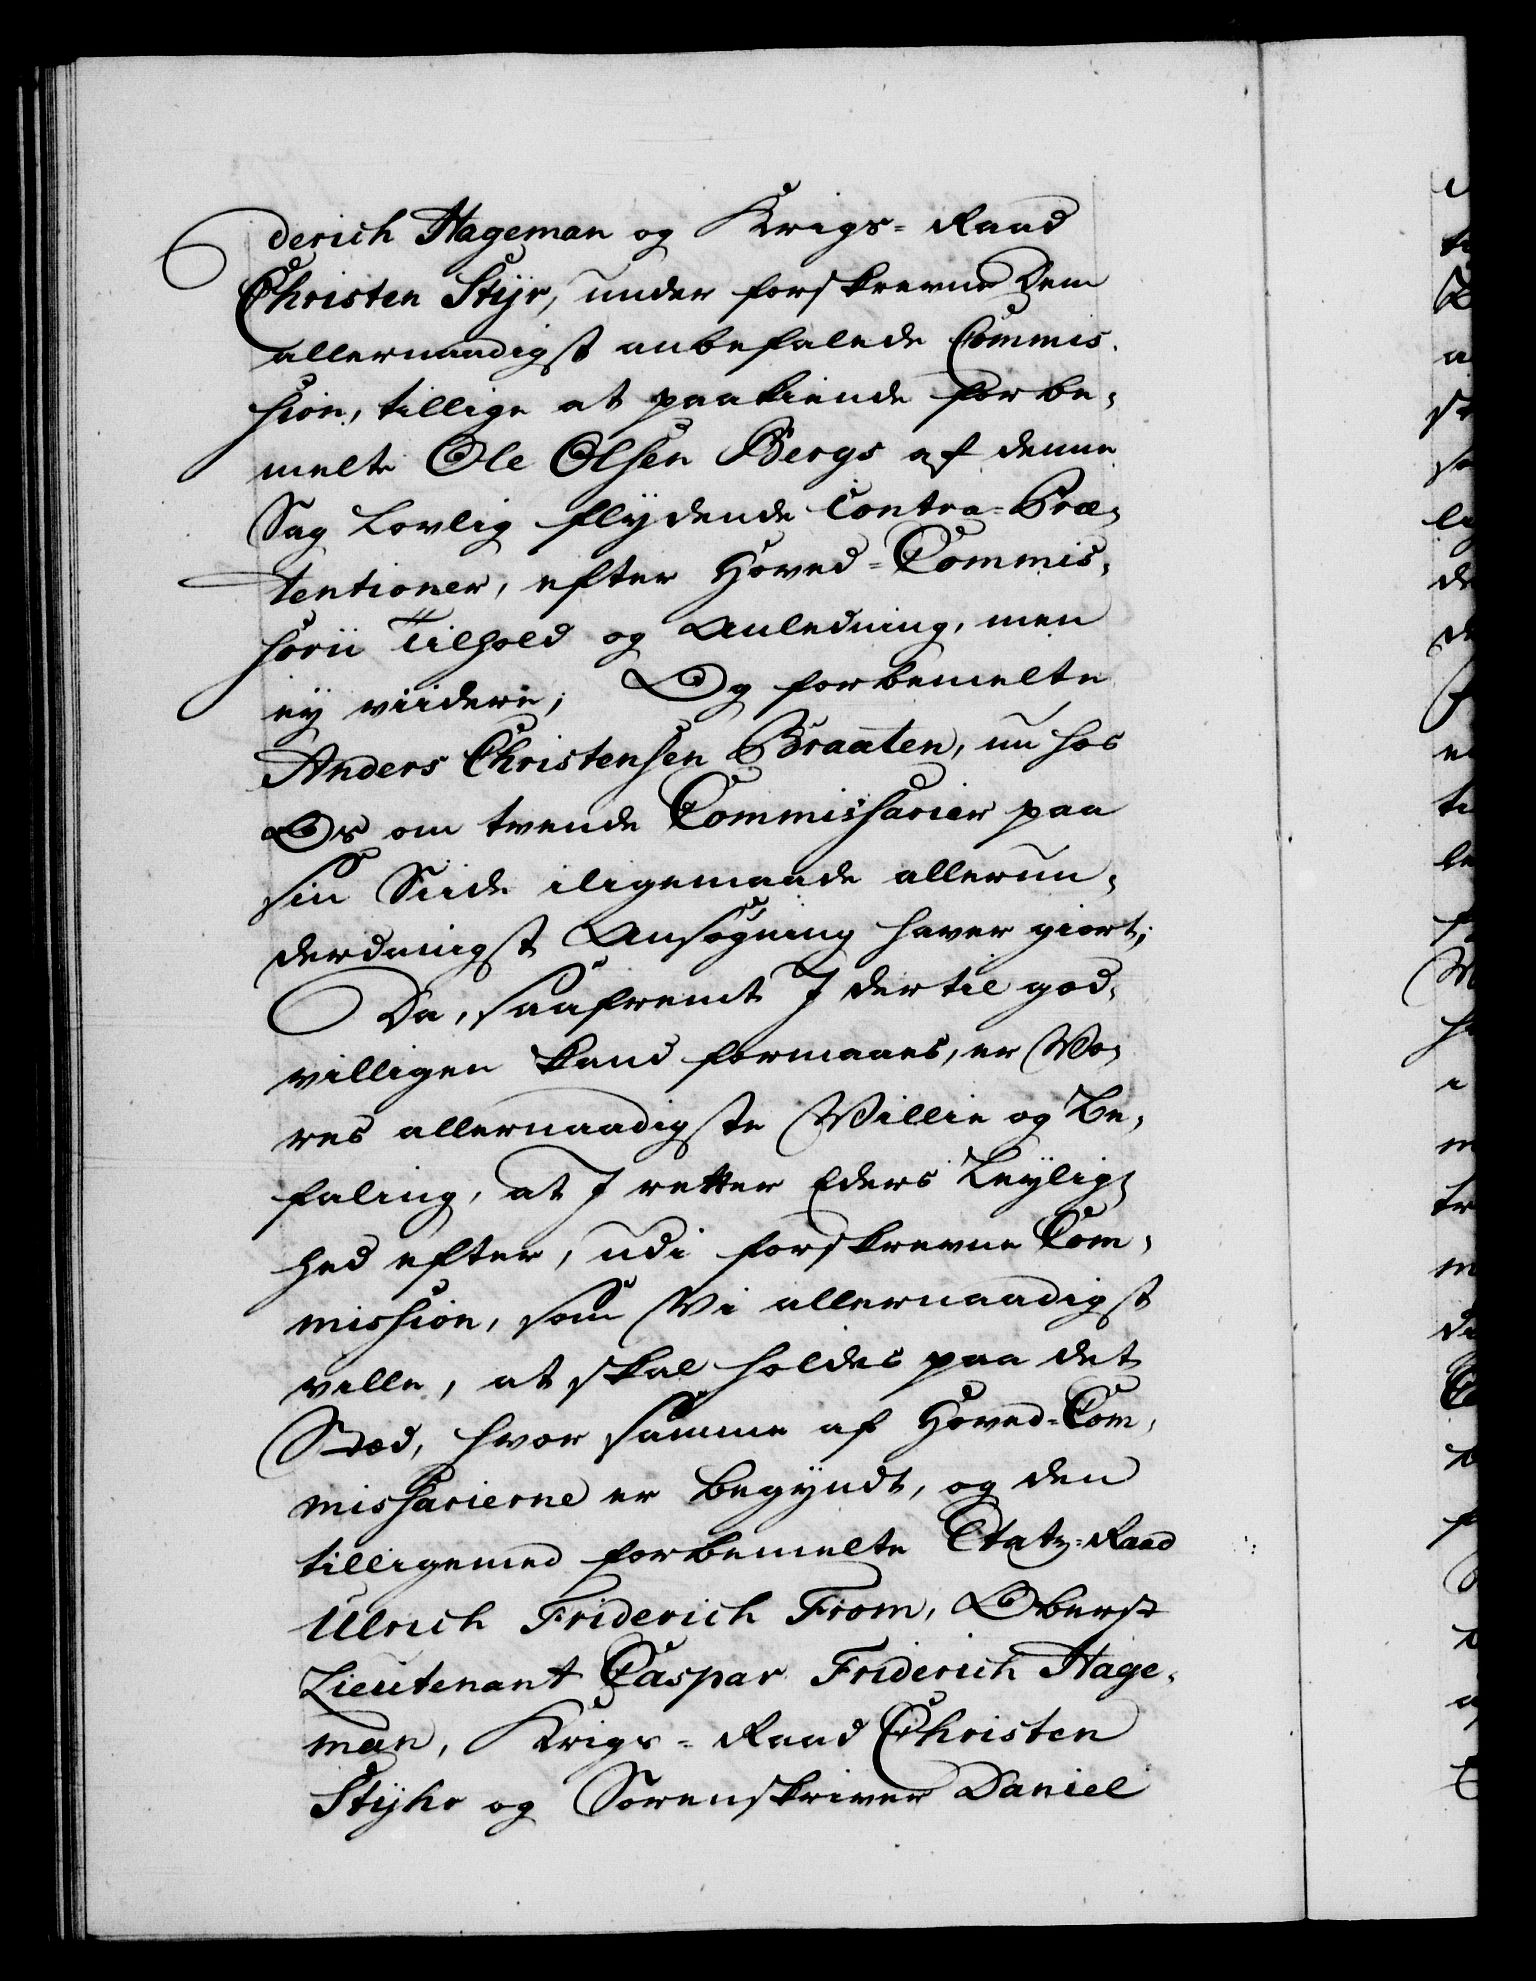 derich Hageman og Krigs=Raad
Christen Stÿr, under forskrevne Dem
allernaadigst anbefalede Commis-
sion, tillige at paakiende forbe-
melte Ole Olsen Bergs af denne
Sag Lovlig flÿdende Contra-Præ-
tentioner, efter Hoved=Commis-
sorii Tilhold og Anledning, men
eÿ viidere; Og forbemelte
Anders Christensen Braaten, nu hos
Os om tvende Commissarier paa
sin Siide iligemaade allerun-
derdanigst Ansøgning haver giort;
Da, saafremt I dertil god-
villigen kand formaaes, er Vo-
res allernaadigste Villie og Be-
faling, at I retter Eders Leÿlig-
hed efter, udi forskrevne Com-
mission, som Vi allernaadigst
ville, at skal holdes paa det
Stæd, hvor samme af Hoved=Com-
missarierne er begÿndt, og den
tilligemed forbemelte Etatz=Raad
Ulrich Friderich From, Oberst
Lieutenant Caspar Friderich Hage-
man, Krigs=Raad Christen
Stÿhr og Sorenskriver Daniel